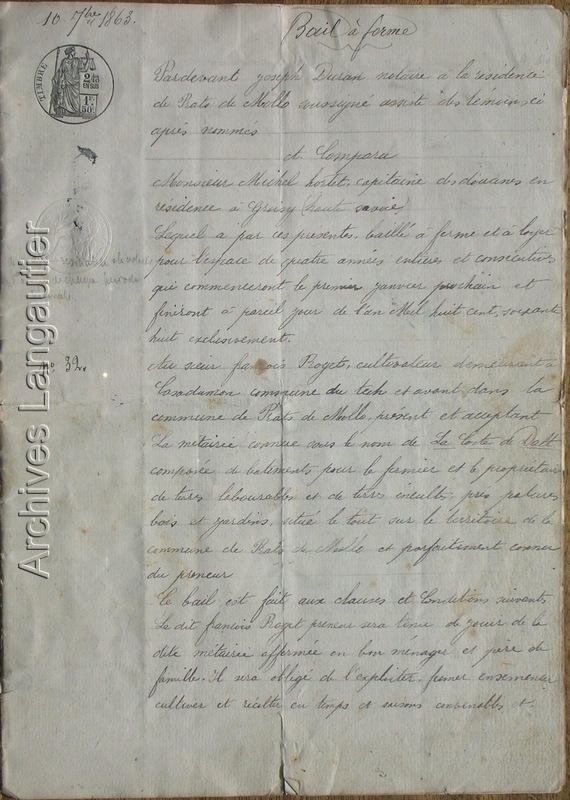 10 7bre 1863.
Bail à ferme
TIMBRE
2/10
EN SUS
1F
50c
Pardevant joseph Duran notaire à la résidence
de Prats de Mollo soussigné assisté des témoins ci
après nommés
a Comparu
Monsieur Michel hostet, capitaine des douanes en
résidence à Groisy haute savoie.
Lequel a par ces présentes, baillé à ferme et à loyer
pour l'espace de quatre années entières et consécutives
qui commenceront le premier janvier prochain et
finiront à pareil jour de l'an Mil huit cent, soixante
huit exclusivement.
no 32.
Au sieur françois Roget, cultivateur demeurant à
commune du tech et avant dans la
commune de Prats de Mollo, présent et acceptant
La métairie connue sous le nom de La Coste de Dalt
composée de batiments pour le fermier et le propriétaire
de terres labourables et de terres incultes, près patures
bois et jardins, situé le tout sur le térritoire de la
commune de Prats de Mollo et parfaitement connu
du preneur
Ce bail est fait aux clauses et Conditions suivants
Le dit françois Roget preneur sera tenu de jouir de la
dite métairie affermée en bon ménager et père de
famille. Il sera obligé de l'exploiter, fumer ensemencer
cultiver et récolter en temps et saisons convenables et
Archives Langautier